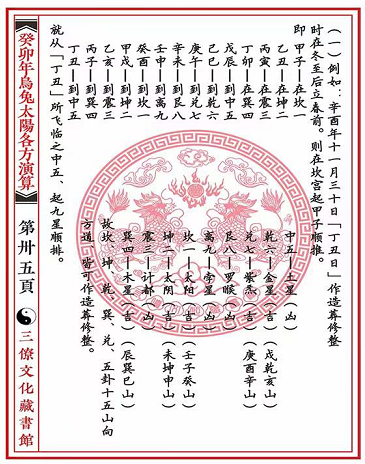 （一）例如：辛酉年十一月三十日「丁丑日」作造葬修整
时在冬至后立春前。则在坎宫起甲子顺推。
即 甲子—在坎一
乙丑—在坤二
丙寅—在震三
丁卯—在巽四
戊辰—到中五
己巳—到乾六
庚午—到兑七
辛未—到艮八
壬申—到离九
癸酉—到坎一
甲戌—到坤二
乙亥—到震三
丙子—到巽四
丁丑—到中五
中五—土星（凶）
乾六—金星（吉）（戌乾亥山）
兑七—紫炁（吉）（庚酉辛山）
艮八—罗睺（凶）
离九—孛星（凶）
坎一—太阳（吉）（壬子癸山）
坤二—太阴（吉）（未坤申山）
震三—计都（凶）
巽四—木星（吉）（辰巽巳山）
故坎、坤、乾、巽、兑、五卦十五山向
方道，皆可作造葬修整。
就从「丁丑」所飞临之中五、起九星顺排。
《癸卯年烏兔太陽各方演算》
第卅五頁
三僚文化藏書館